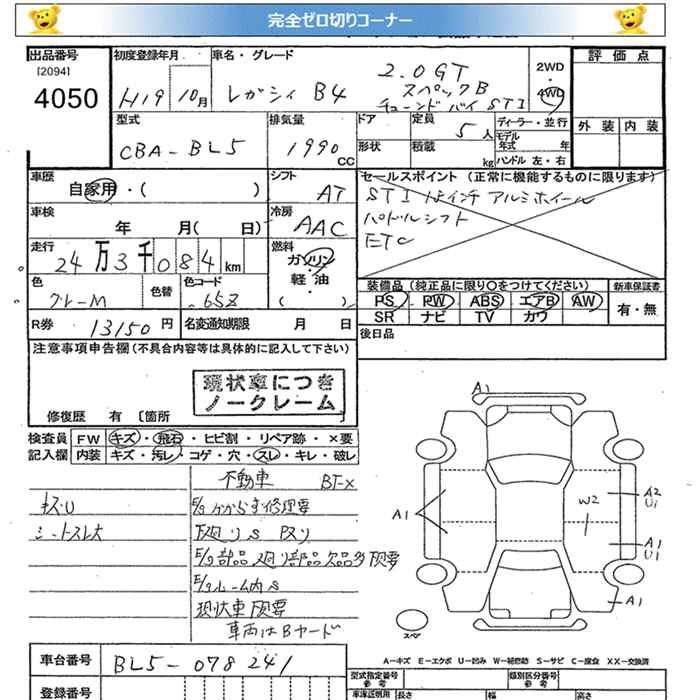 完全ゼロ切りコーナー
出品番号
[2094]
4050
初度登録年月
H19 10月
車名・グレード
レガシィ B4
2.0GT
スペックB
チューンド バイ STI
2WD
・
4WD
評価点
外装 内装
型式
CBA-BL5
排気量
1990 CC
ドア
形状
定員
5人
積載
kg
ディーラー・並行
モデル
年式 年
ハンドル 左・右
車歴
自家用・( )
シフト
AT
セールスポイント (正常に機能するものに限ります)
STI 18インチ アルミホイール
パドルシフト
ETC
車検
年 月( 日)
冷房
AAC
走行
24万3千084km
燃料
ガソリン
・
軽油
( )
色
グレーM
色替
色コード
65Z
装備品 (純正品に限り○をつけてください)
PS PW ABS エアB AW
SR ナビ TV カワ
新車保証書
有・無
R券
13150円
名変通知期限 月 日
後日品
注意事項申告欄(不具合内容等は具体的に記入して下さい)
現状車につき
ノークレーム
修復歴 有 〔箇所
検査員
記入欄
FW キズ・飛石・ヒビ割・リペア跡・×要
内装 キズ・汚レ・コゲ・穴・スレ・キレ・破レ
不動車 BT-X
キズU
シートスレ大
E/g分からず修理要
下廻りS Pスリ
E/g部品 廻り部品 欠品多 下見要
E/gルーム内S
現状車 下見要
車両はBヤード
A1
A1
W2
A2
U1
A1
U1
A1
スペア
A-キズ E-エクボ U-凹み W-補修跡 S-サビ C-腐食 XX-交換済
車台番号
BL5-078241
登録番号
型式指定番号
参考
類別区分番号
参考
車庫証明用
長さ
幅
高さ